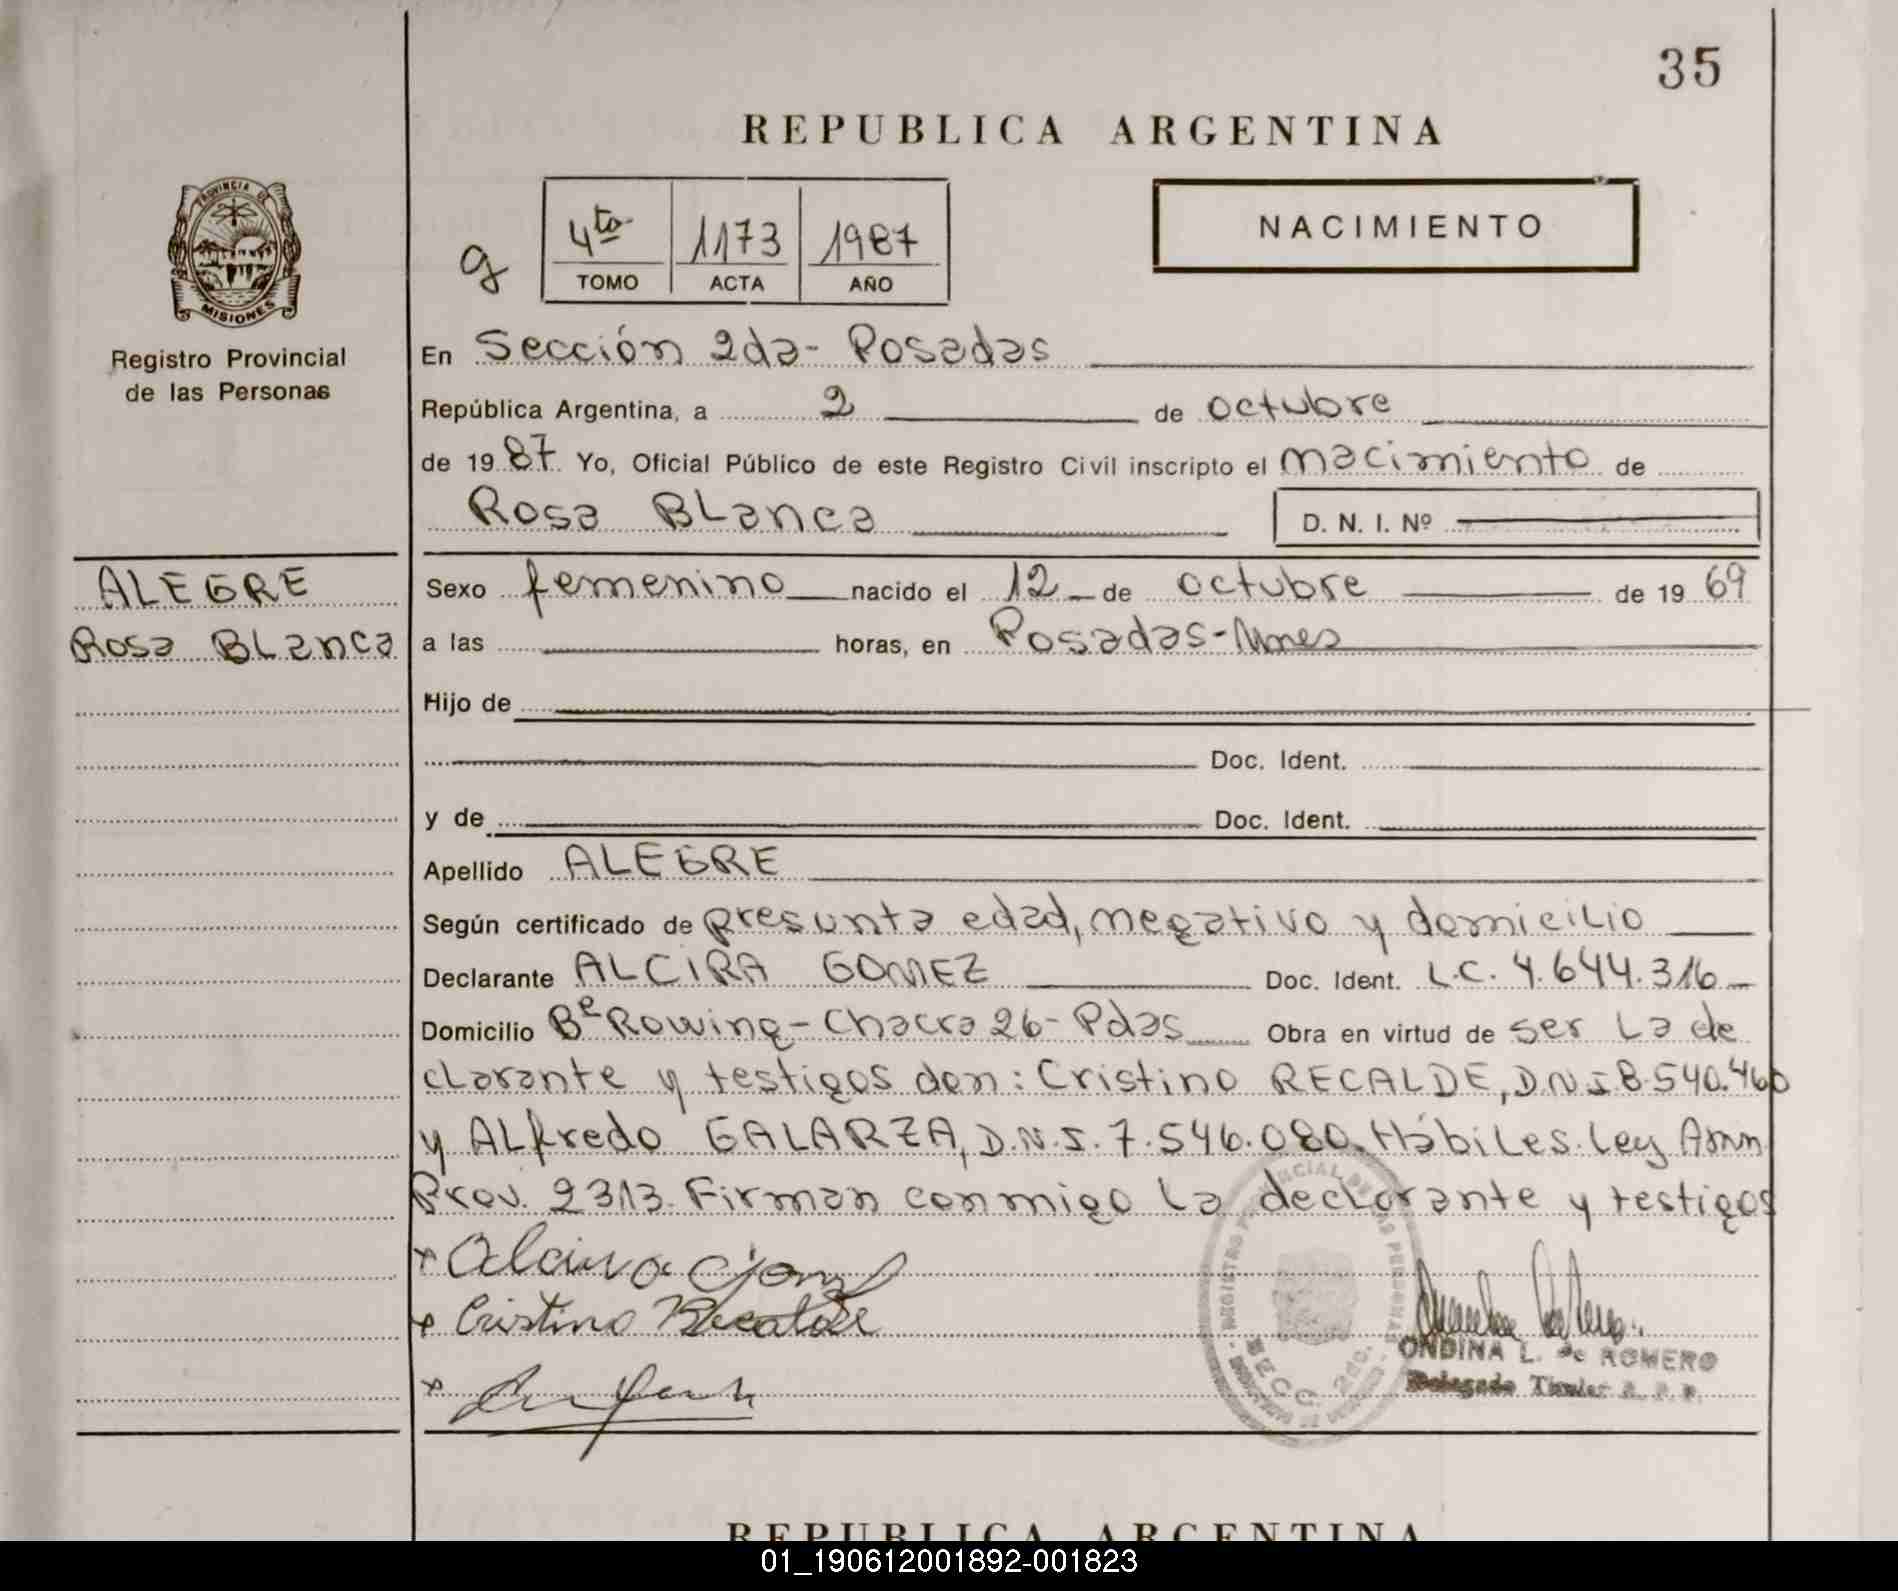 35
REPUBLICA ARGENTINA
PROVINCIA DE
MISIONES
Registro Provincial
de las Personas
g
4to
1173
1987
TOMO
ACTA
AÑO
NACIMIENTO
En Sección 2da- Posadas
República Argentina, a 2 de octubre
de 1987 Yo, Oficial Público de este Registro Civil inscripto el nacimiento de
Rosa BLanca
D. N. I. Nº
ALEGRE
Rosa BLanca
Sexo femenino nacido el 12 de octubre de 1969
a las horas, en Posadas-Mnes
Hijo de
Doc. Ident.
y de Doc. Ident.
Apellido ALEGRE
Según certificado de presunta edad, negativo y domicilio
Declarante ALCIRA GOMEZ Doc. Ident. L.C. 4.644.316
Domicilio Bº Rowing-Chacra 26-Pdas Obra en virtud de ser La de
clarante y testigos don: Cristino RECALDE, D.N.I 8.540.460
y ALfredo GALARZA, D.N.I. 7.546.080. Hábiles. Ley Arnn.
Prov. 2313. Firman conmigo La declarante y testigos
x Alcira Gomez
x Cristino Recalde
x
REGISTRO PROVINCIAL DE LAS PERSONAS
SECC. 2da.
ONDINA L. de ROMERO
Delegado Titular R. P. P.
REPUBLICA ARGENTINA
01_190612001892-001823